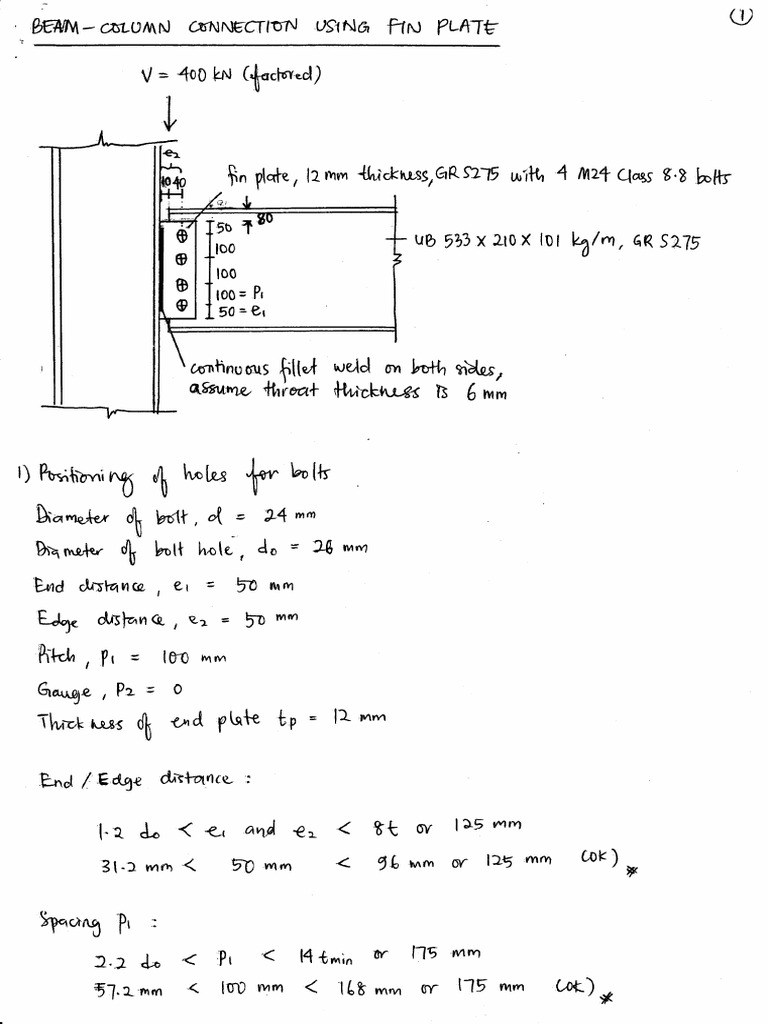 ①
BEAM-COLUMN CONNECTION USING FIN PLATE
V = 400 kN (factored)
e2
10 40
fin plate, 12 mm thickness, GR S275 with 4 M24 Class 8.8 bolts
80
50
100
100
100 = P1
50 = e1
UB 533 x 210 x 101 kg/m, GR S275
continuous fillet weld on both sides,
assume throat thickness is 6 mm
1) Positioning of holes for bolts
Diameter of bolt, d = 24 mm
Diameter of bolt hole, do = 26 mm
End distance, e1 = 50 mm
Edge distance, e2 = 50 mm
Pitch, P1 = 100 mm
Gauge, P2 = 0
Thickness of end plate tp = 12 mm
End / Edge distance :
1.2 do < e1 and e2 < 8t or 125 mm
31.2 mm < 50 mm < 96 mm or 125 mm (OK) *
Spacing P1 :
2.2 do < P1 < 14 tmin or 175 mm
57.2 mm < 100 mm < 168 mm or 175 mm (OK) *